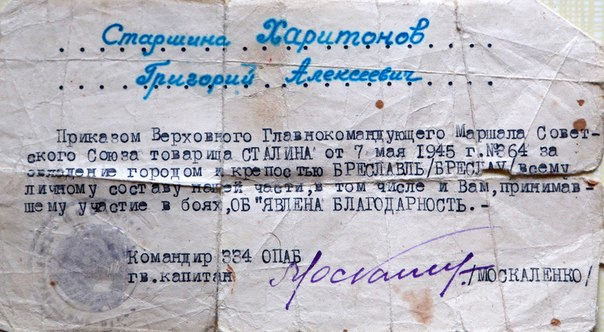 Старшина Харитонов
Григорий Алексеевич
Приказом Верховного Главнокомандующего Маршала Совет-
ского Союза товарища СТАЛИНА от 7 мая 1945 г.№364 за
овладение городом и крепостью БРЕСЛАВЛЬ/БРЕСЛАУ/всему
личному составу нашей части,в том числе и Вам,принимав-
шему участие в боях,ОБ"ЯВЛЕНА БЛАГОДАРНОСТЬ.-
Командир 334 ОПАБ
гв.капитан Москаленко /МОСКАЛЕНКО/